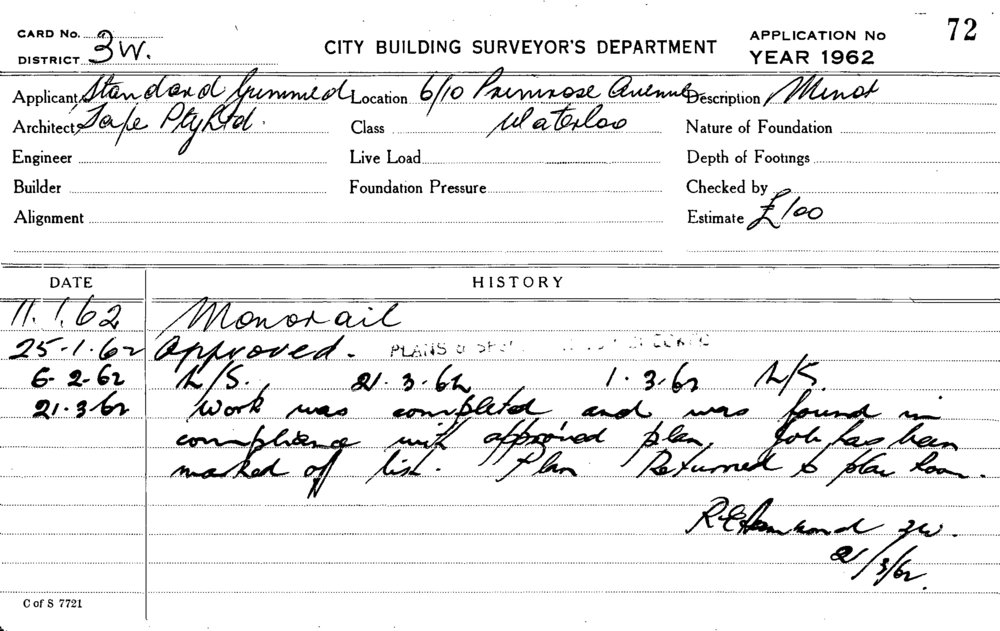 CARD No. 72
DISTRICT 3W. CITY BUILDING SURVEYOR'S DEPARTMENT APPLICATION No
YEAR 1962
Applicant Standard Gummed Location 6/10 Primrose Avenue Description Minor
Architect Tape Pty Ltd. Class Waterloo Nature of Foundation
Engineer Live Load Depth of Footings
Builder Foundation Pressure Checked by
Alignment Estimate £100
DATE HISTORY
11.1.62 Monorail
25-1-62 Approved. PLANS &
6-2-62 L/S. 21.3.62 1.3.62 L/S.
21.3.62 Work was completed and was found in
compliance with approved plan. Job has been
marked off list. Plan Returned to plan room.
R E Hammond 3W.
21/3/62.
C of S 7721